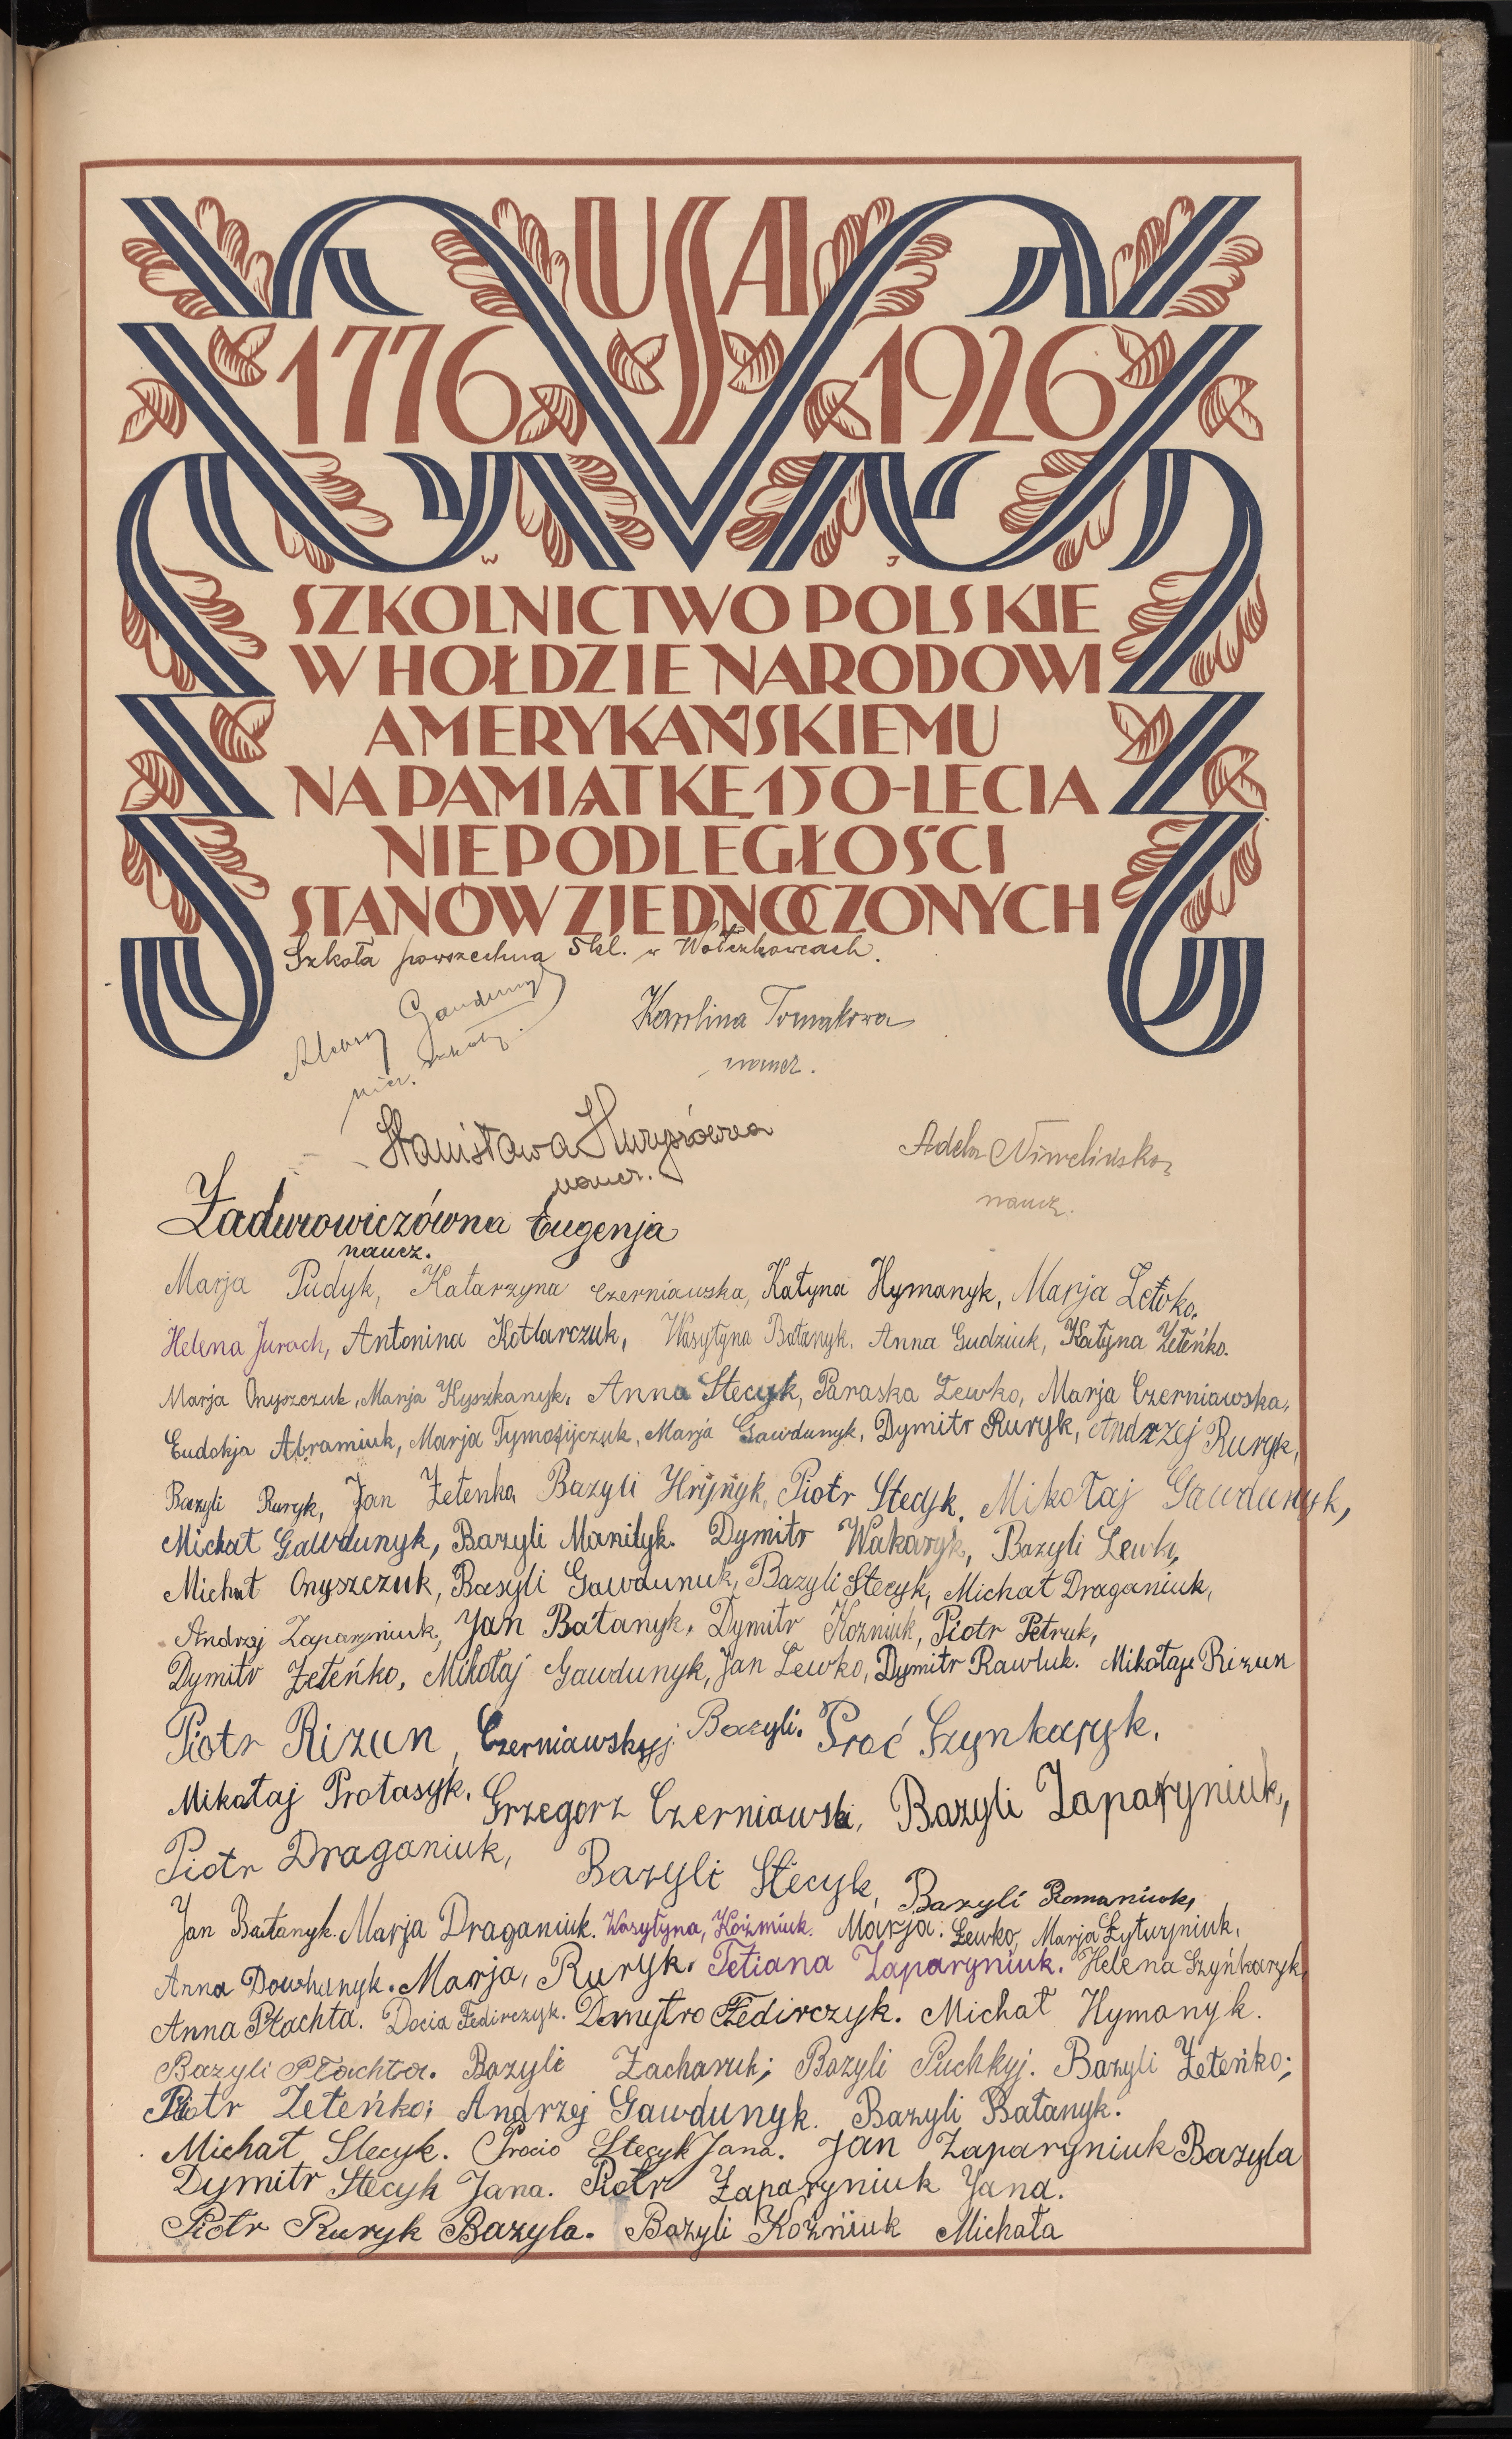 USA
1776 1926
W J
SZKOLNICTWO POLSKIE
W HOŁDZIE NARODOWI
AMERYKAŃSKIEMU
NA PAMIĄTKĘ 150-LECIA
NIEPODLEGŁOŚCI
STANÓW ZJEDNOCZONYCH
Szkoła powszechna 5 kl. w Wołczkowcach.
Karolina Tomakowa
naucz.
szkoły.
Stanisława
naucz.
Adela
naucz.
Zadurowiczówna Eugenja
naucz.
Marja Pudyk, Katarzyna Czerniawska, Katyna Hymanyk, Marja Lewko.
Helena Jurach, Antonina Kotlarczuk, Wasyłyna Bałanyk. Anna Gudziuk, Katyna Żełeńko.
Marja Onyszczuk, Marja Kyszkanyk, Anna Stecyk, Paraska Lewko, Marja Czerniawska,
Eudokja Abramiuk, Marja Tymofijczuk, Marja Gawdunyk, Dymitr Ruryk, Andrzej Ruryk,
Bazyli Ruryk, Jan Żełenka Bazyli Hryńyk, Piotr Stecyk, Mikołaj Gawdunyk,
Michał Gawdunyk, Bazyli Maniłyk. Dymitr Wakaryk, Bazyli Lewko,
Michał Onyszczuk, Basyli Gawdunuk, Bazyli Stecyk, Michał Draganiuk,
Andrzej Zaparyniuk, Jan Bałanyk, Dymitr Kozniuk, Piotr Petruk,
Dymitr Żełeńko, Mikołaj Gawdunyk, Jan Lewko, Dymitr Rawluk. Mikołaj Rizun
Piotr Rizun, Czerniawskyj Bazyli. Proć Szynkaryk.
Mikołaj Protasyk. Grzegorz Czerniawski, Bazyli Zaparyniuk,
Piotr Draganiuk, Bazyli Stecyk, Bazyli Romaniuk,
Jan Bałanyk. Marja Draganiuk. Wasyłyna, Koźmiuk. Marja. Lewko, Marja Łyturyniuk,
Anna Dowhanyk. Marja, Ruryk. Tetiana Zaparyniuk. Helena Szyńkaryk,
Anna Płachta. Docia Fedirczyk. Dmytro Fedirczyk. Michał Hymanyk.
Bazyli Płachta. Bazyli Zacharuk; Bazyli Puchkyj. Bazyli Żełeńko;
Piotr Zełeńko; Andrzej Gawdunyk. Bazyli Bałanyk.
Michał Stecyk. Procio Stecyk Jana. Jan Zaparyniuk Bazyla
Dymitr Stecyk Jana. Piotr Zaparyniuk Jana.
Piotr Ruryk Bazyla. Bazyli Kozniuk Michała